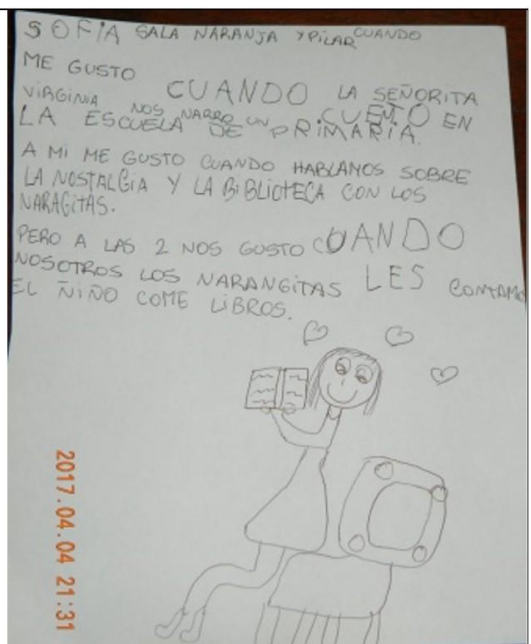 SOFIA SALA NARANJA Y PILAR CUANDO
ME GUSTO
CUANDO LA SEÑORITA
VIRGINIA NOS NARRO UN CUENTO EN
LA ESCUELA DE PRIMARIA.
A MI ME GUSTO CUANDO HABLAMOS SOBRE
LA NOSTALGIA Y LA BIBLIOTECA CON LOS
NARAGITAS.
PERO A LAS 2 NOS GUSTO CUANDO
NOSOTROS LOS NARANGITAS LES CONTAMO
EL NIÑO COME LIBROS.
2017.04.04 21:31